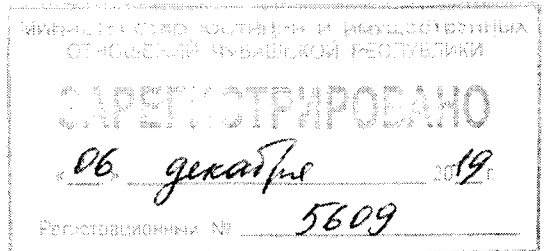 МИНИСТЕРСТВО ЮСТИЦИИ И ИМУЩЕСТВЕННЫХ
ОТНОШЕНИЙ ЧУВАШСКОЙ РЕСПУБЛИКИ
ЗАРЕГИСТРИРОВАНО
«06» декабря 2019 г.
Регистрационный № 5609